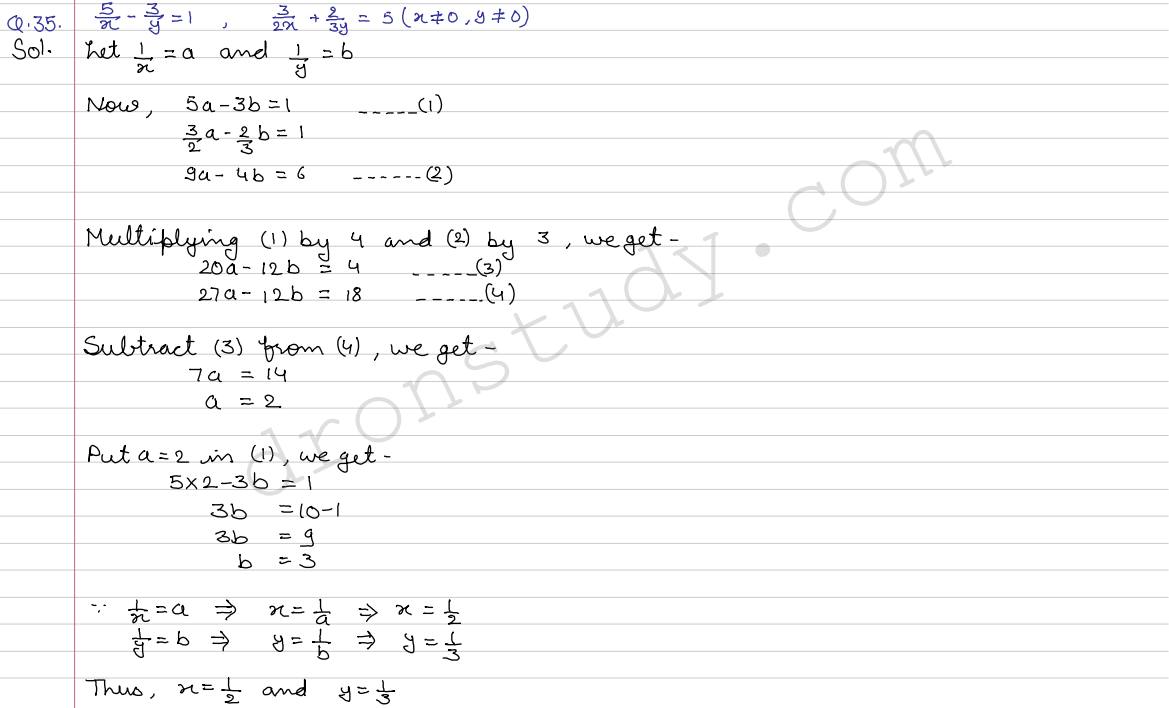 Q.35. 5/x - 3/y = 1 , 3/2x + 2/3y = 5 (x≠0, y≠0)
Sol. Let 1/x = a and 1/y = b
Now, 5a - 3b = 1 -----(1)
3/2 a - 2/3 b = 1
9a - 4b = 6 ------(2)
Multiplying (1) by 4 and (2) by 3, we get -
20a - 12b = 4 -----(3)
27a - 12b = 18 ------(4)
Subtract (3) from (4), we get -
7a = 14
a = 2
Put a = 2 in (1), we get -
5×2 - 3b = 1
3b = 10-1
3b = 9
b = 3
∵ 1/x = a ⇒ x = 1/a ⇒ x = 1/2
1/y = b ⇒ y = 1/b ⇒ y = 1/3
Thus, x = 1/2 and y = 1/3
dronstudy.com